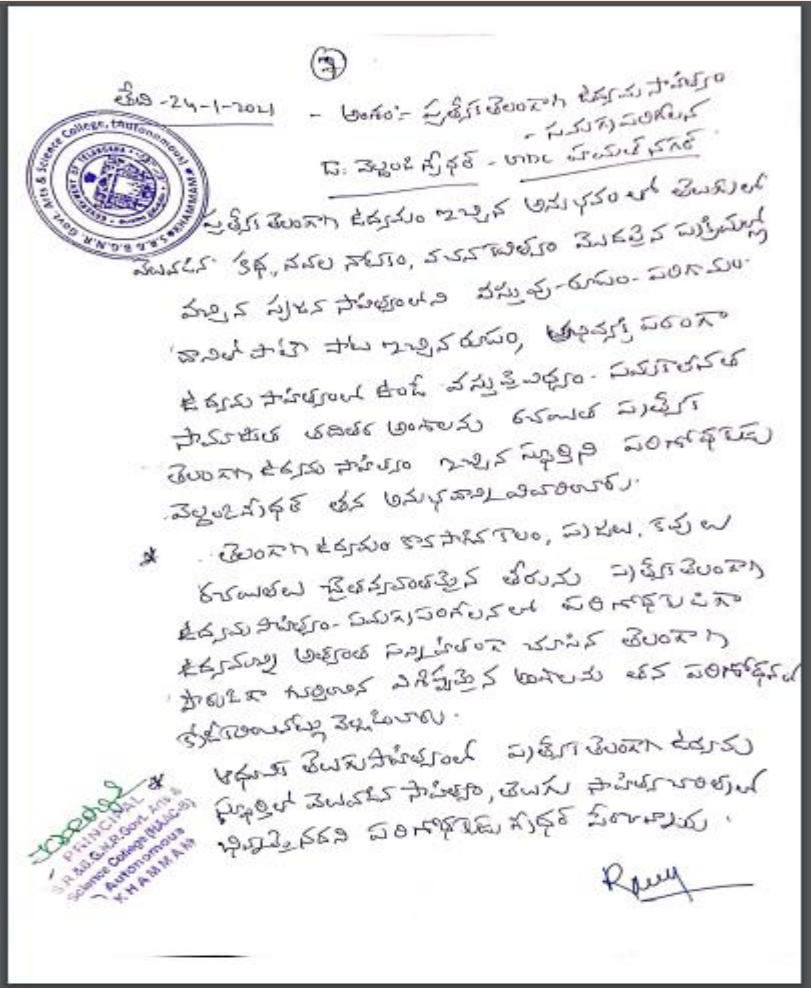 7
తేది -24-1-2021 - అంశం:- ప్రత్యేక తెలంగాణ ఉద్యమ సాహిత్యం
- సమగ్ర పరిశీలన
డా. వెల్దండి శ్రీధర్ - హయత్ నగర్
S.R.& B.G.N.R. Govt. Arts & Science College, (Autonomous)
GOVERNMENT OF TELANGANA
ప్రత్యేక తెలంగాణ ఉద్యమం ఇచ్చిన అనుభవంలో తెలుగులో
వెలువడిన కథ, నవల నాటకం, వచన కవిత్వం మొదలైన ప్రక్రియల్లో
వచ్చిన సృజన సాహిత్యంలోని వస్తువు-రూపం- పరిణామం
దానిలో పాటు పాట ఇచ్చిన రూపం, అభివ్యక్తి పరంగా
ఉద్యమ సాహిత్యంలో ఉండే వస్తు వైవిధ్యం- సమకాలీనత
సామాజికత తదితర అంశాలను రచయిత ప్రత్యేక
తెలంగాణ ఉద్యమ సాహిత్యం ఇచ్చిన స్ఫూర్తిని పరిశోధకుడు
వెల్దండి శ్రీధర్ తన అనుభవాన్ని వివరించారు.
* తెలంగాణ ఉద్యమం కొనసాగిన కాలం, ప్రజలు, కవులు
రచయితలు చైతన్యవంతమైన తీరును ప్రత్యేక తెలంగాణ
ఉద్యమ సాహిత్యం- సమగ్ర పరిశీలనలో పరిశోధకుడిగా
ఉద్యమాన్ని అత్యంత సన్నిహితంగా చూసిన తెలంగాణ
పౌరుడిగా గుర్తించిన విశిష్టమైన అంశాలను తన పరిశోధనలో
క్రోడీకరించినట్లు వెల్లడించారు.
* ఆధునిక తెలుగు సాహిత్యంలో ప్రత్యేక తెలంగాణ ఉద్యమ
స్ఫూర్తితో వెలువడిన సాహిత్యం, తెలుగు సాహిత్య చరిత్రలో
భిన్నమైనదని పరిశోధకుడు శ్రీధర్ పేర్కొన్నారు.
PRINCIPAL
S.R.&B.G.N.R.Govt. Arts &
Science College (NAAC-B)
Autonomous
KHAMMAM